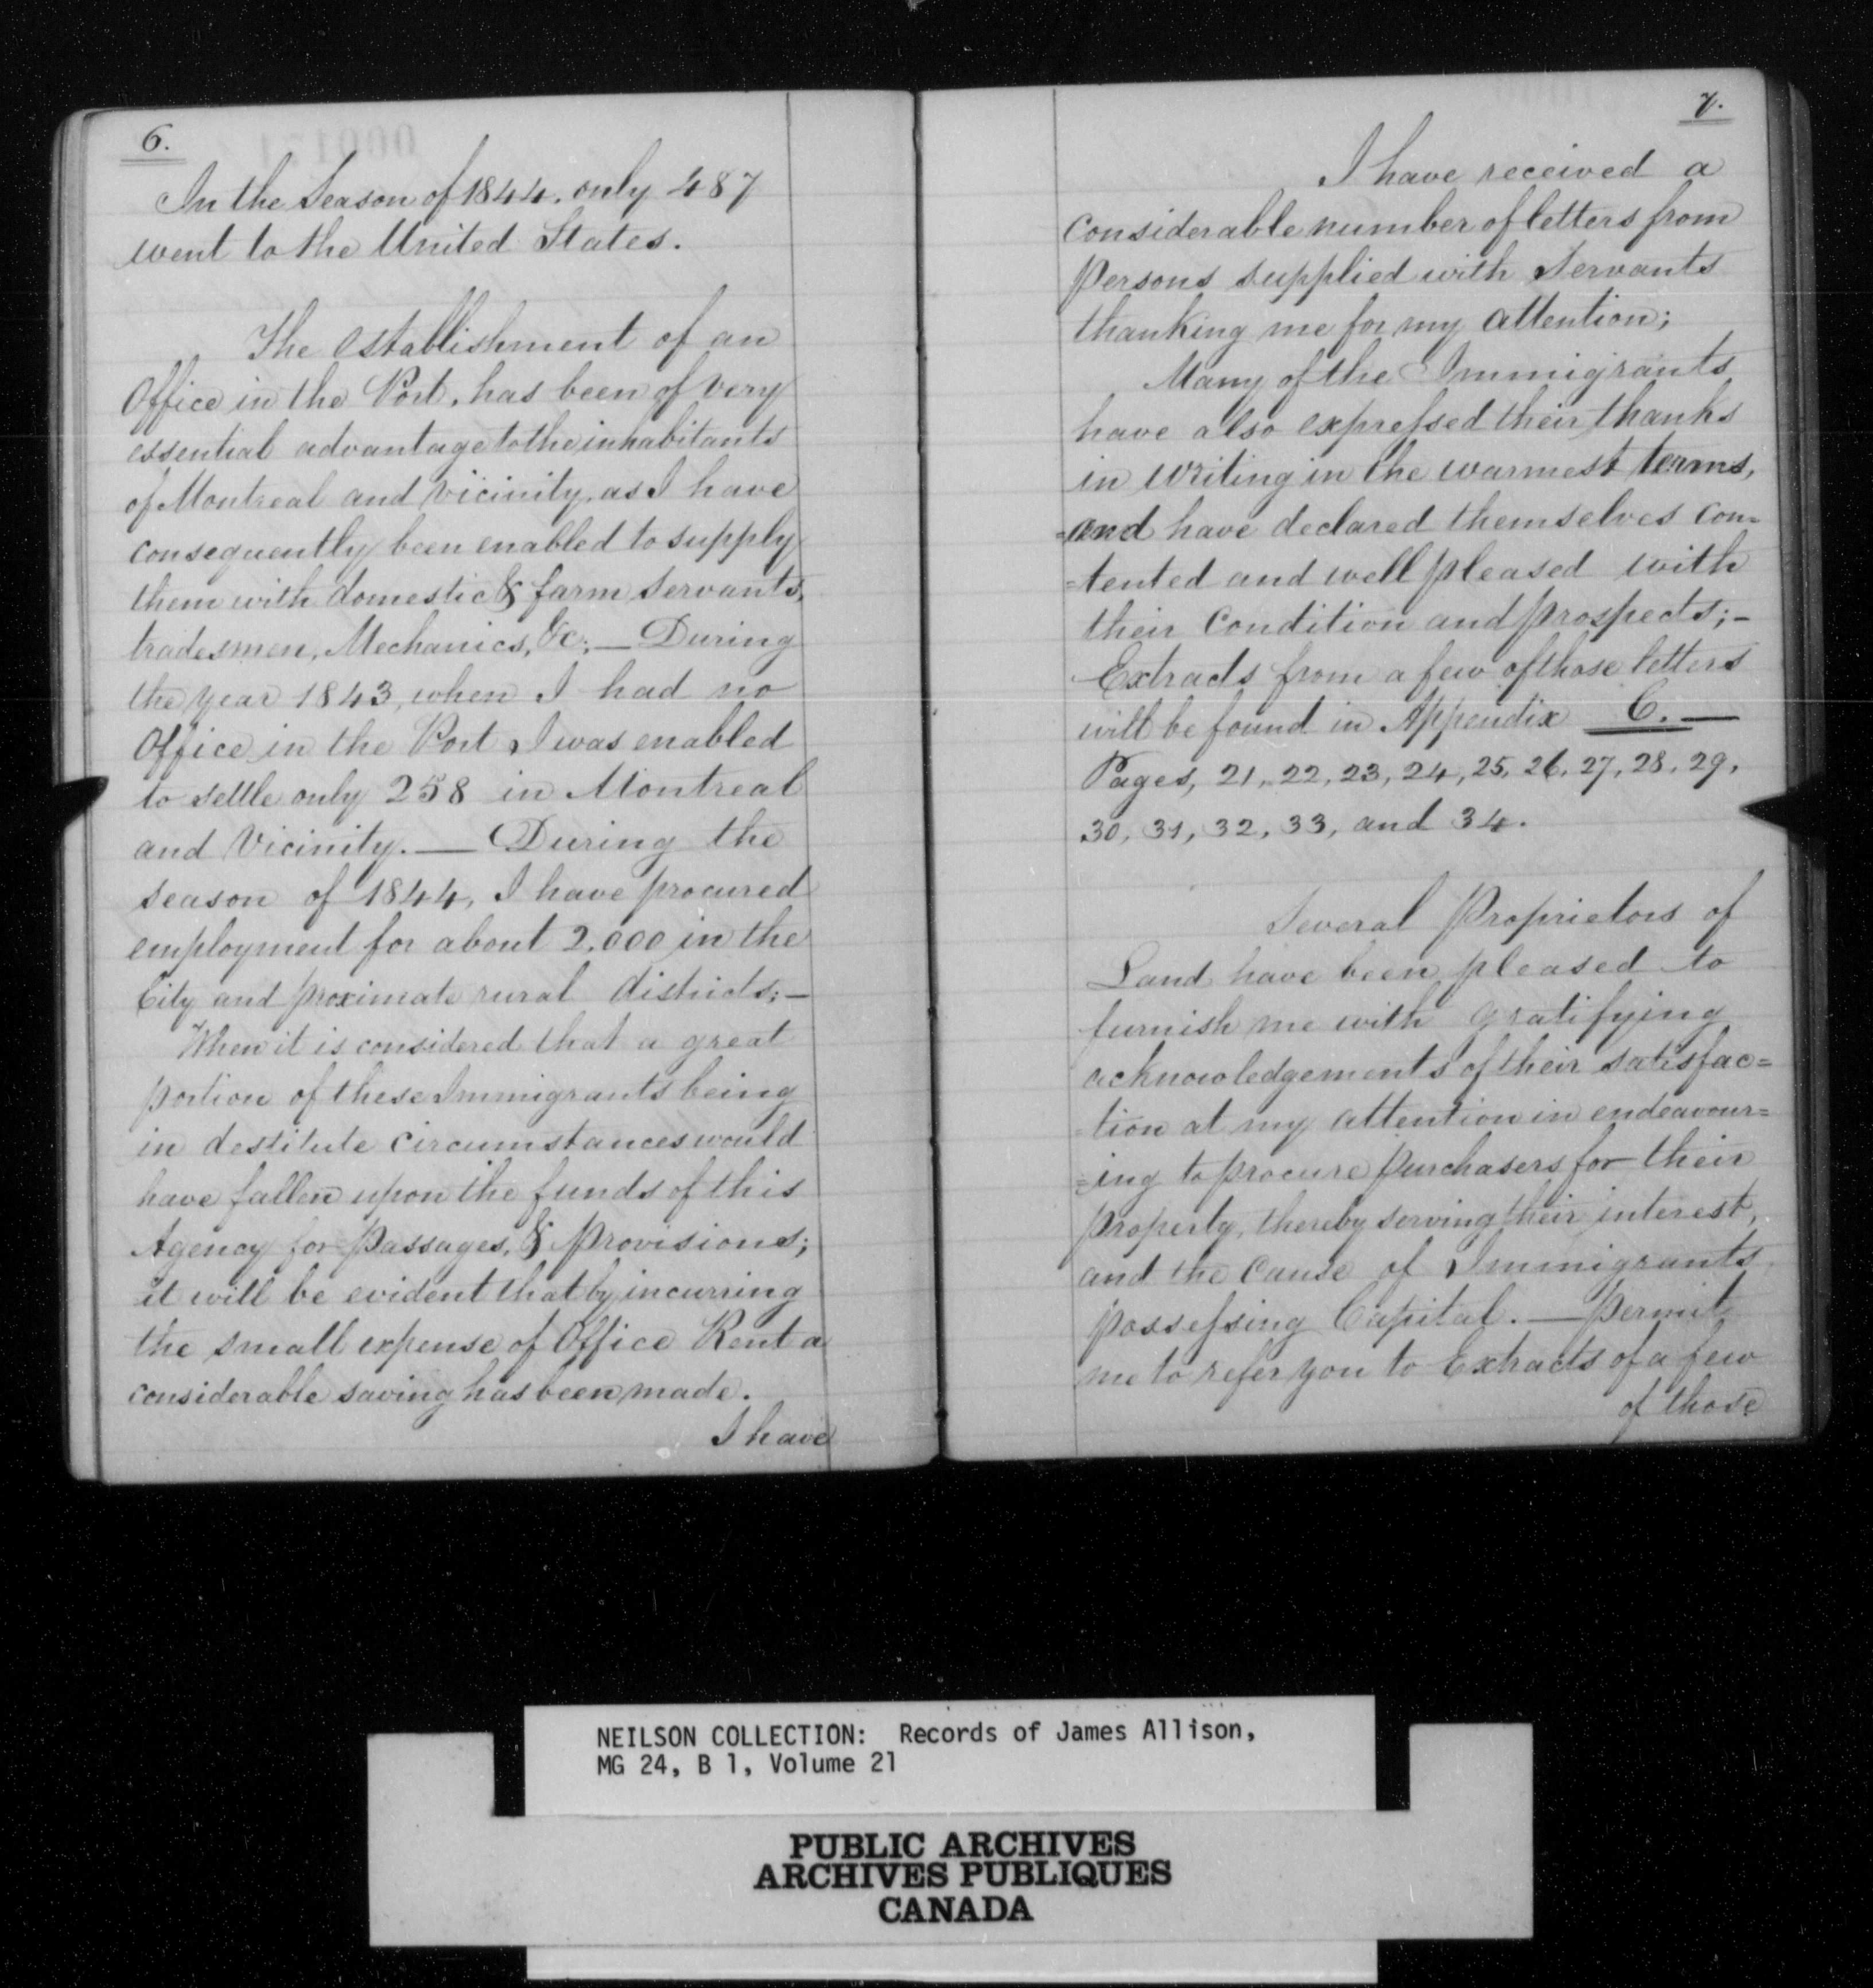 6.
In the Season of 1844. only 487
went to the United States.
The establishment of an
Office in the Port, has been of very
essential advantage to the inhabitants
of Montreal and vicinity, as I have
consequently been enabled to supply
them with domestic & farm servants,
tradesmen, Mechanics, &c; — During
the year 1843, when I had no
Office in the Port I was enabled
to settle only 258 in Montreal
and Vicinity. — During the
season of 1844, I have procured
employment for about 2.000 in the
City and proximate rural districts; —
When it is considered that a great
portion of these Immigrants being
in destitute circumstances would
have fallen upon the funds of this
Agency for Passages, & Provisions;
it will be evident that by incurring
the small expense of Office Rent a
considerable saving has been made.
I have
7.
I have received a
considerable number of letters from
Persons supplied with Servants
thanking me for my attention;
Many of the Immigrants
have also expressed their thanks
in writing in the warmest terms,
=and have declared themselves con=
=tented and well pleased with
their condition and prospects; –
Extracts from a few of those letters
will be found in Appendix C. —
Pages, 21, 22, 23, 24, 25, 26, 27, 28, 29,
30, 31, 32, 33, and 34.
Several Proprietors of
Land have been pleased to
furnish me with gratifying
acknowledgements of their satisfac=
=tion at my attention in endeavour=
=ing to procure purchasers for their
property, thereby serving their interest,
and the cause of Immigrants
possessing Capital. — Permit
me to refer you to Extracts of a few
of those
NEILSON COLLECTION: Records of James Allison,
MG 24, B 1, Volume 21
PUBLIC ARCHIVES
ARCHIVES PUBLIQUES
CANADA